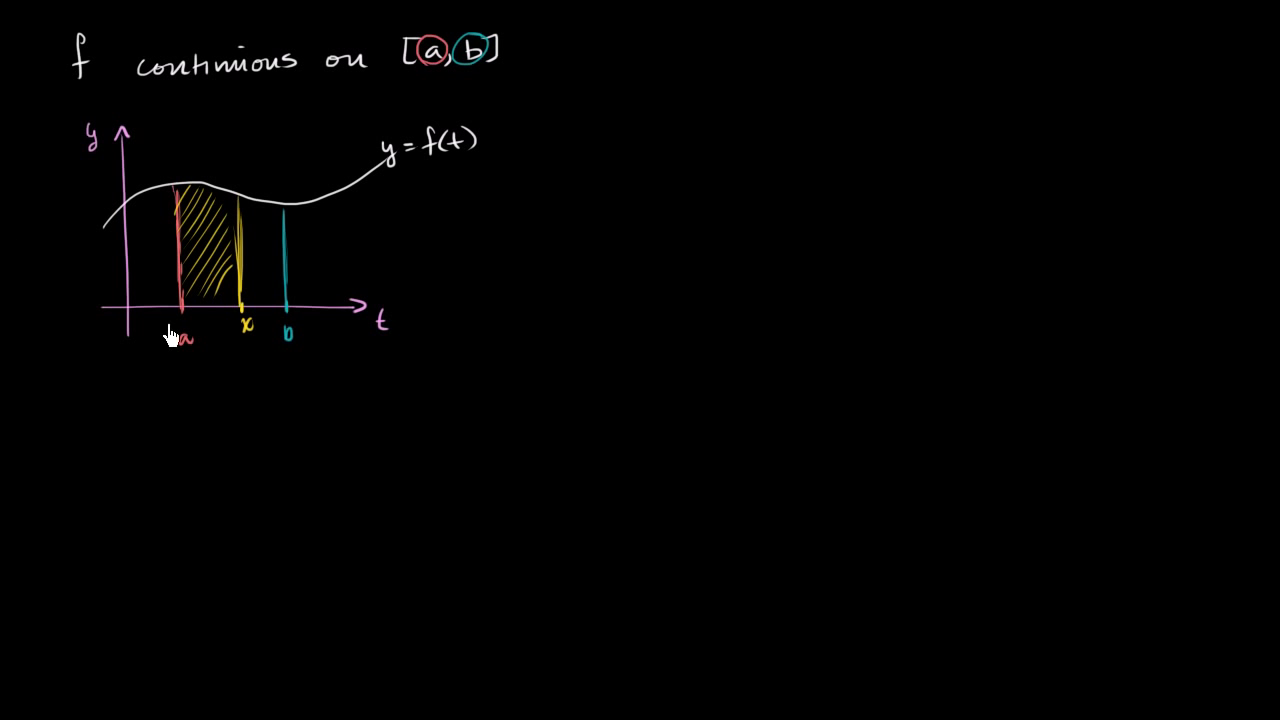 f continuous on [a,b]
y
y = f(t)
t
a
x
b